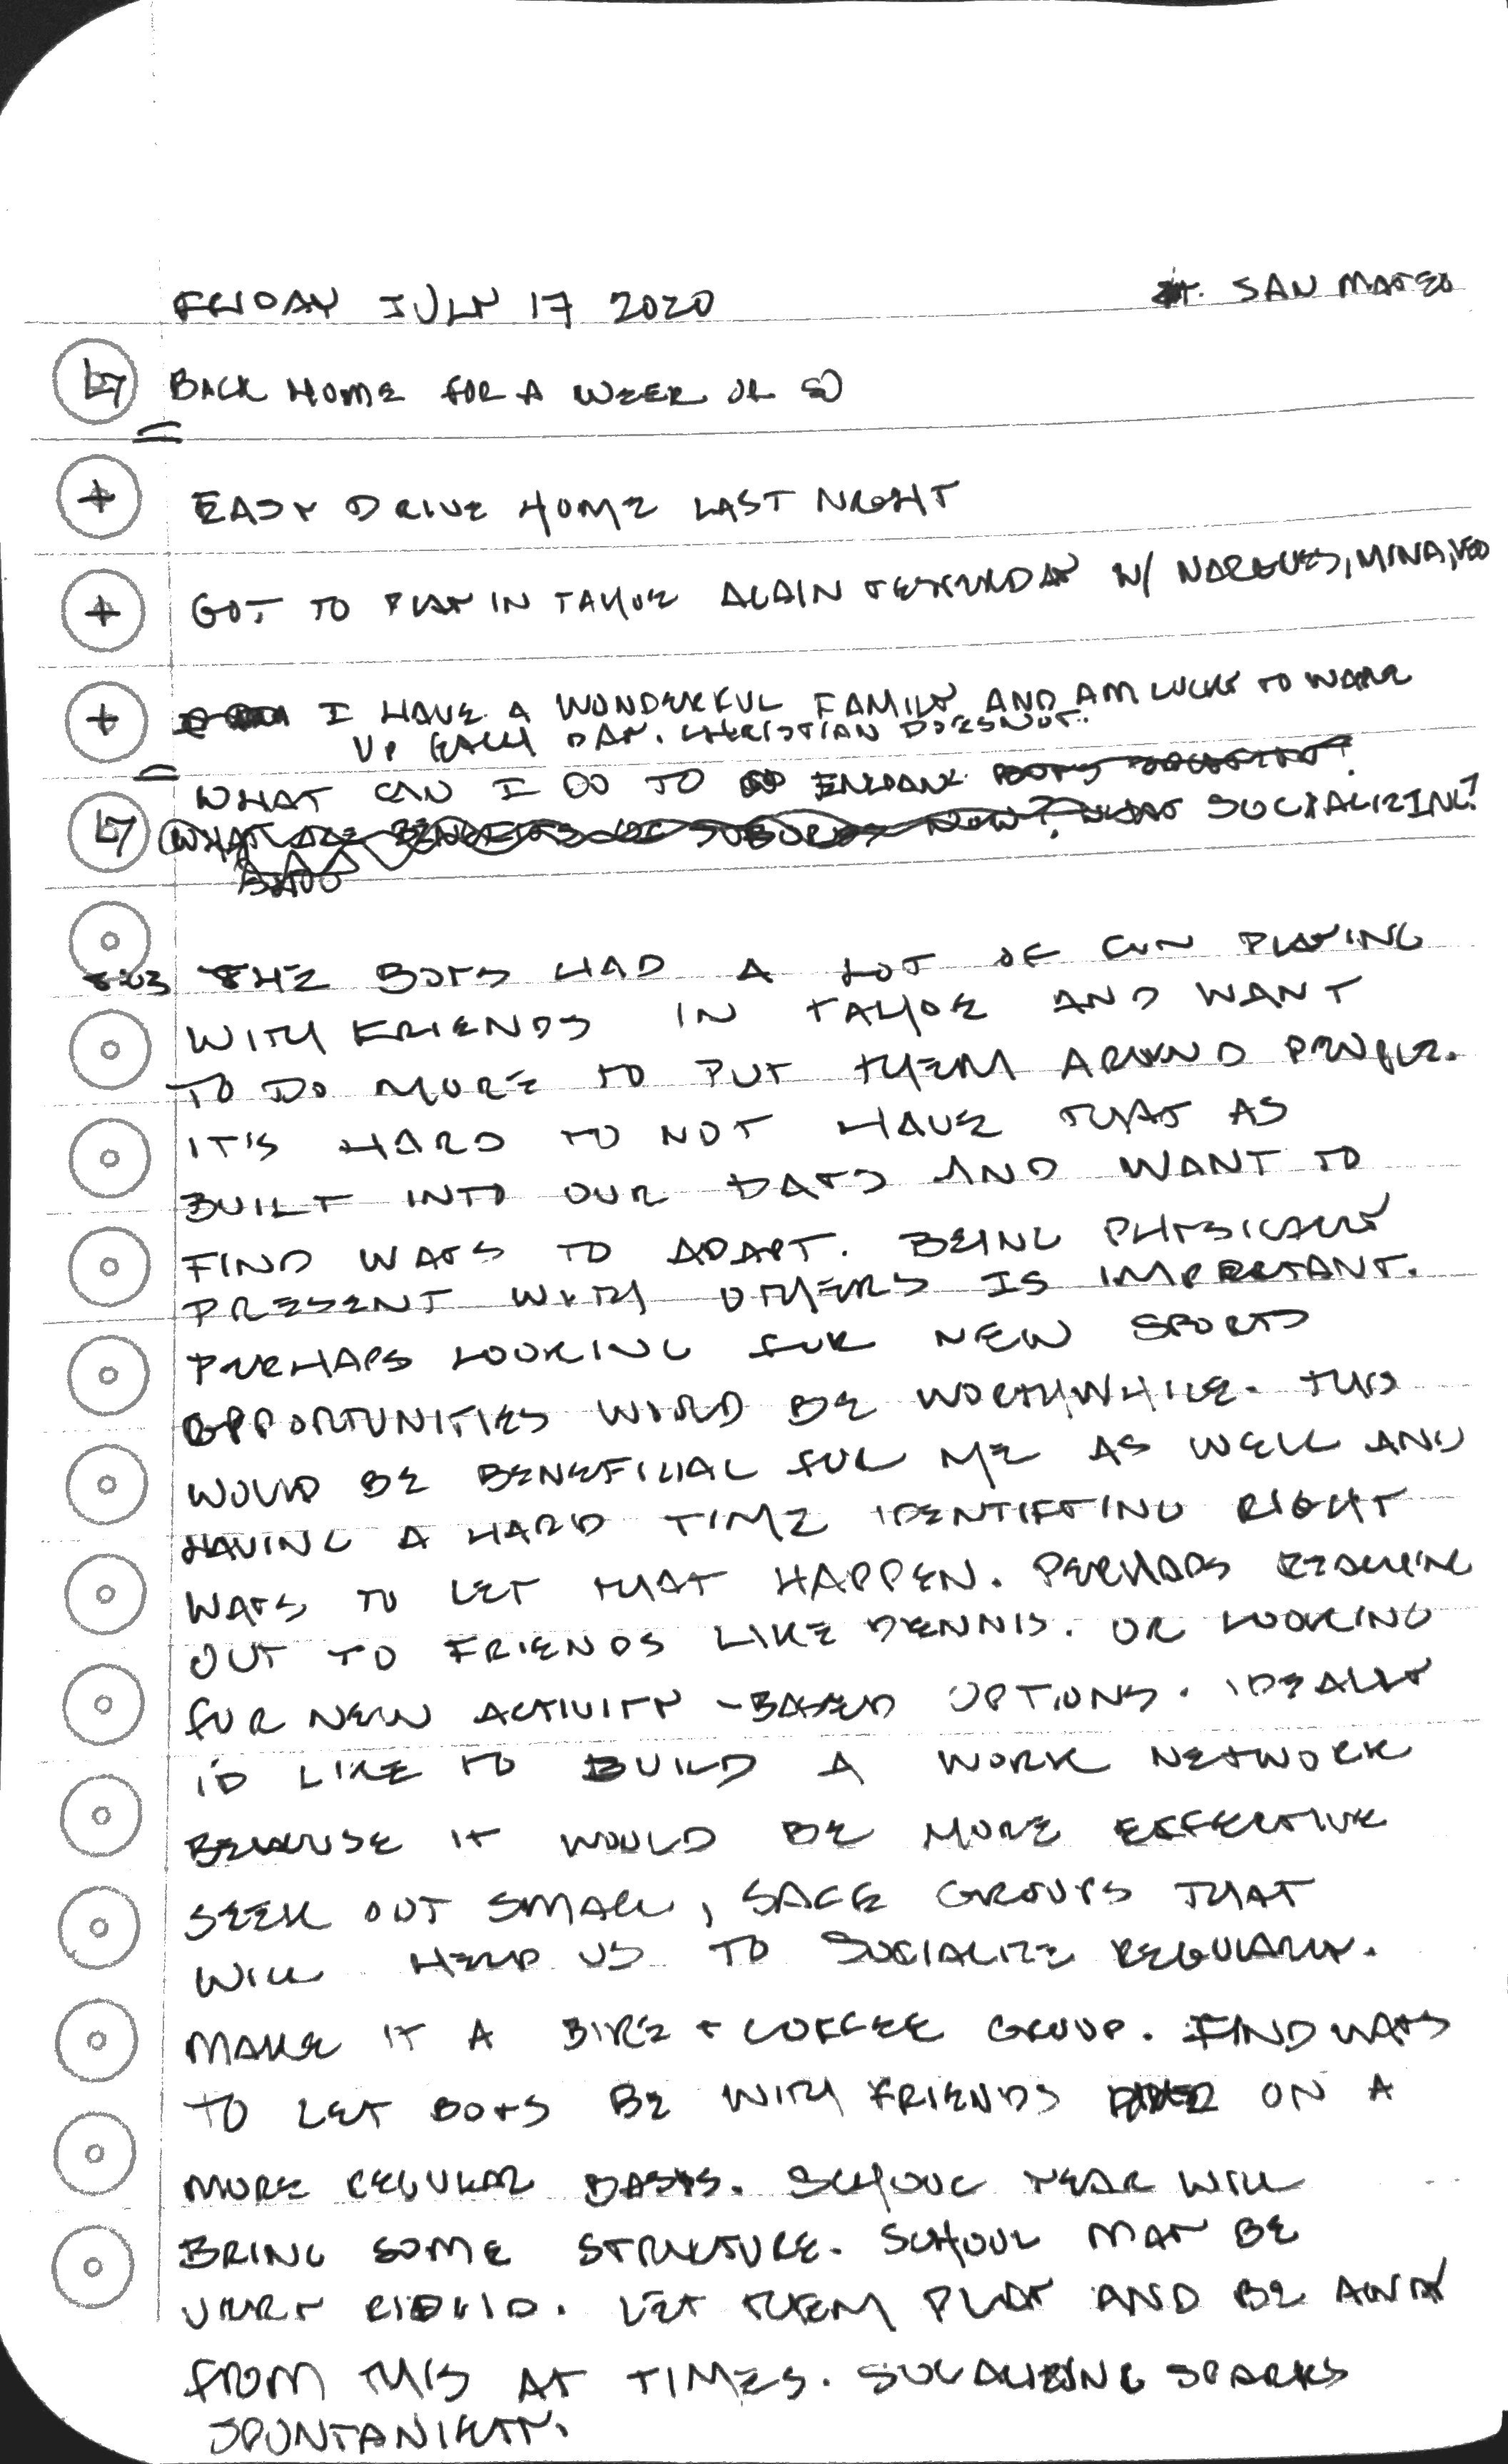 FRIDAY JULY 17 2020
SAN MATEO
BACK HOME FOR A WEEK OR SO
+ EASY DRIVE HOME LAST NIGHT
+ GOT TO PLAY IN TAHOE AGAIN YESTERDAY W/ NARGUES, MINA,
+ I HAVE A WONDERFUL FAMILY AND AM LUCKY TO WAKE
UP EACH DAY. CHRISTIAN DOES NOT.
WHAT CAN I DO TO ENHANCE
SOCIALIZING?
THE BOYS HAD A LOT OF FUN PLAYING
WITH FRIENDS IN TAHOE AND WANT
TO DO MORE TO PUT THEM AROUND PEOPLE.
IT'S HARD TO NOT HAVE THAT AS
BUILT INTO OUR DAYS AND WANT TO
FIND WAYS TO ADAPT. BEING PHYSICALLY
PRESENT WITH OTHERS IS IMPORTANT.
PERHAPS LOOKING FOR NEW SPORTS
OPPORTUNITIES WOULD BE WORTHWHILE. THIS
WOULD BE BENEFICIAL FOR ME AS WELL AND
HAVING A HARD TIME IDENTIFYING RIGHT
WAYS TO LET THAT HAPPEN. PERHAPS REACHING
OUT TO FRIENDS LIKE DENNIS. OR LOOKING
FOR NEW ACTIVITY-BASED OPTIONS. IDEALLY
I'D LIKE TO BUILD A WORK NETWORK
BECAUSE IT WOULD BE MORE EFFECTIVE
SEEK OUT SMALL, SAFE GROUPS THAT
WILL HELP US TO SOCIALIZE REGULARLY.
MAKE IT A BIKE + COFFEE GROUP. FIND WAYS
TO LET BOYS BE WITH FRIENDS ON A
MORE REGULAR BASIS. SCHOOL YEAR WILL
BRING SOME STRUCTURE. SCHOOL MAY BE
VERY RIDGID. LET THEM PLAY AND BE AWAY
FROM THIS AT TIMES. SOCALIZING SPARKS
SPONTANIETY.